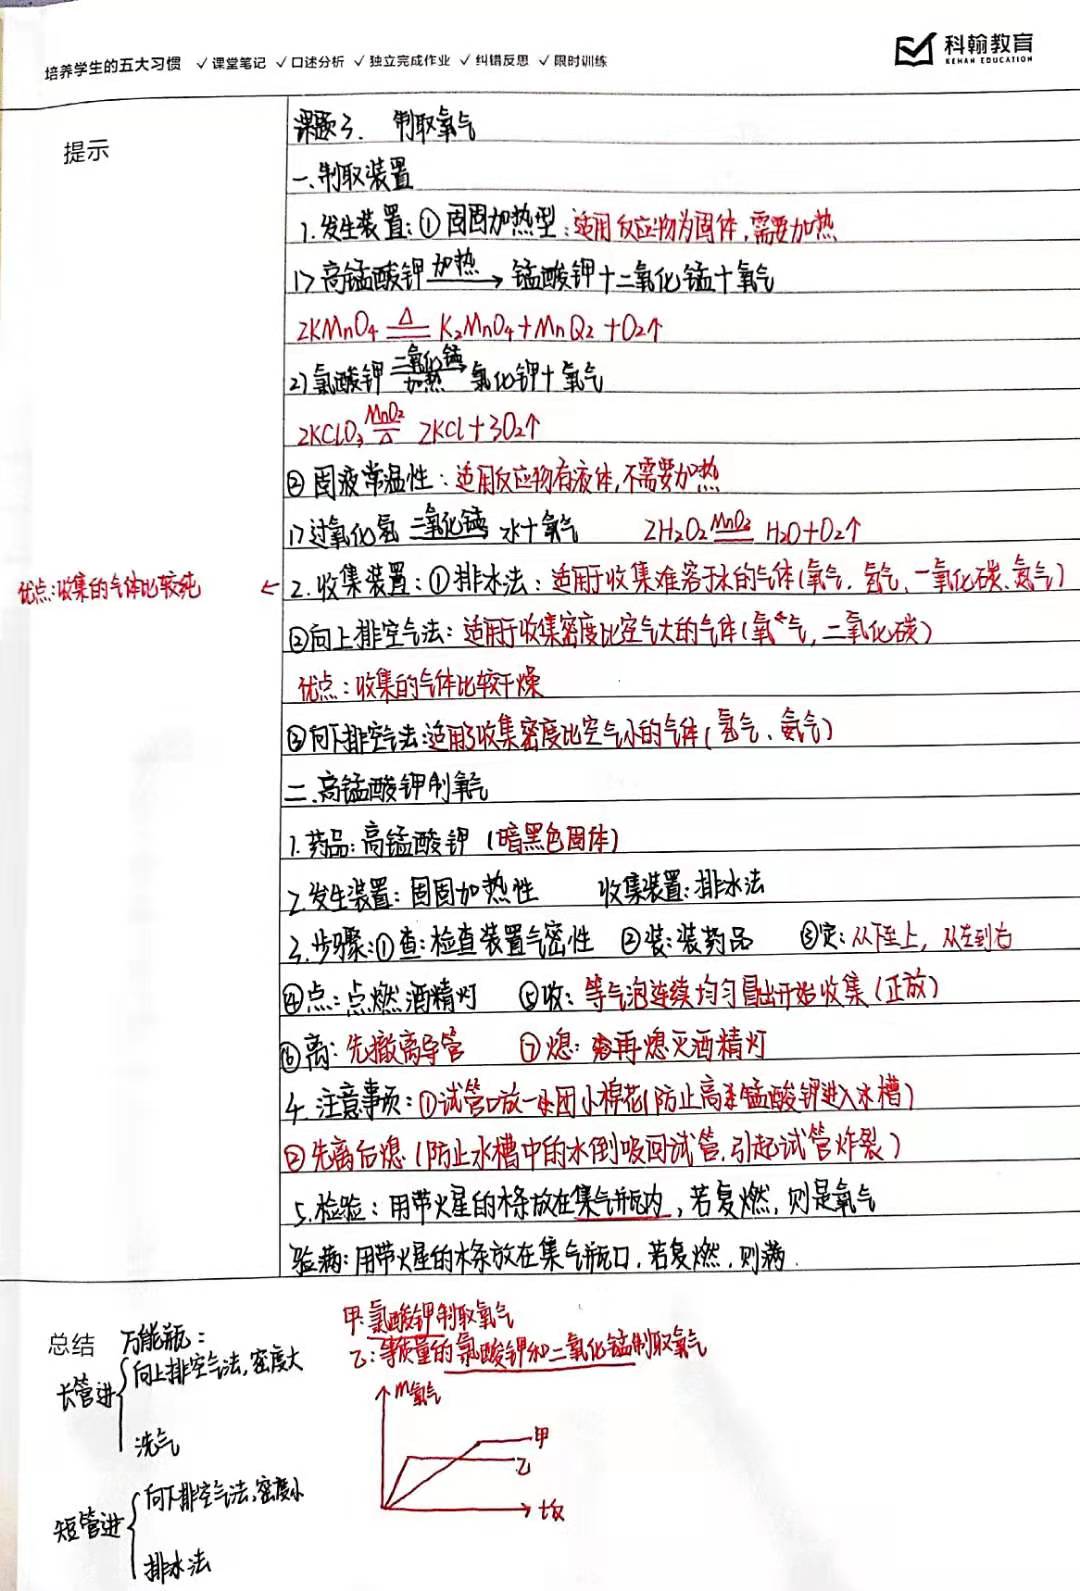 培养学生的五大习惯 ✓课堂笔记 ✓口述分析 ✓独立完成作业 ✓纠错反思 ✓限时训练
科翰教育
KEHAN EDUCATION
提示
课题3. 制取氧气
一、制取装置
1.发生装置:①固固加热型:适用反应物为固体,需要加热
1>高锰酸钾 加热→ 锰酸钾+二氧化锰+氧气
2KMnO4 △ K2MnO4+MnO2+O2↑
2)氯酸钾 二氧化锰 加热 氯化钾+氧气
2KClO3 MnO2 △ 2KCl+3O2↑
②固液常温性:适用反应物有液体,不需要加热
1>过氧化氢 二氧化锰 水+氧气 2H2O2 MnO2 H2O+O2↑
优点:收集的气体比较纯 ← 2.收集装置:①排水法:适用于收集难容于水的气体(氧气.氢气、一氧化碳、氮气)
②向上排空气法:适用于收集密度比空气大的气体(氧气,二氧化碳)
优点:收集的气体比较干燥
③向下排空气法:适用于收集密度比空气小的气体(氢气、氨气)
二、高锰酸钾制氧气
1.药品:高锰酸钾(暗黑色固体)
2.发生装置:固固加热性 收集装置:排水法
3.步骤:①查:检查装置气密性 ②装:装药品 ③定:从下至上,从左到右
④点:点燃酒精灯 ⑤收:等气泡连续均匀冒出开始收集(正放)
⑥离:先撤离导管 ⑦熄:再熄灭酒精灯
4.注意事项:①试管口放一团小棉花(防止高锰酸钾进入水槽)
②先离后熄(防止水槽中的水倒吸回试管,引起试管炸裂)
5.检验:用带火星的木条放在集气瓶内,若复燃,则是氧气
验满:用带火星的木条放在集气瓶口,若复燃,则满.
总结 万能瓶:
长管进 向上排空气法,密度大
洗气
短管进 向下排空气法,密度小
排水法
甲:氯酸钾制取氧气
乙:等质量的氯酸钾和二氧化锰制取氧气
m氧气
甲
乙
t反